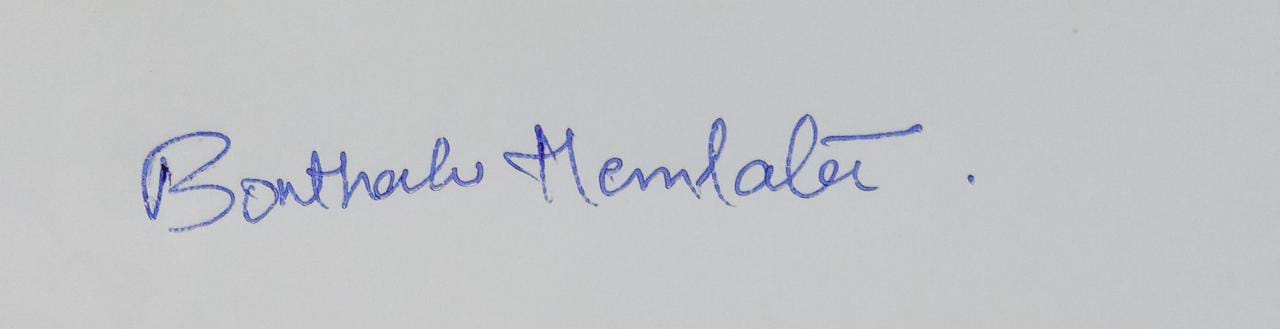 Bonthalu Hemlata .